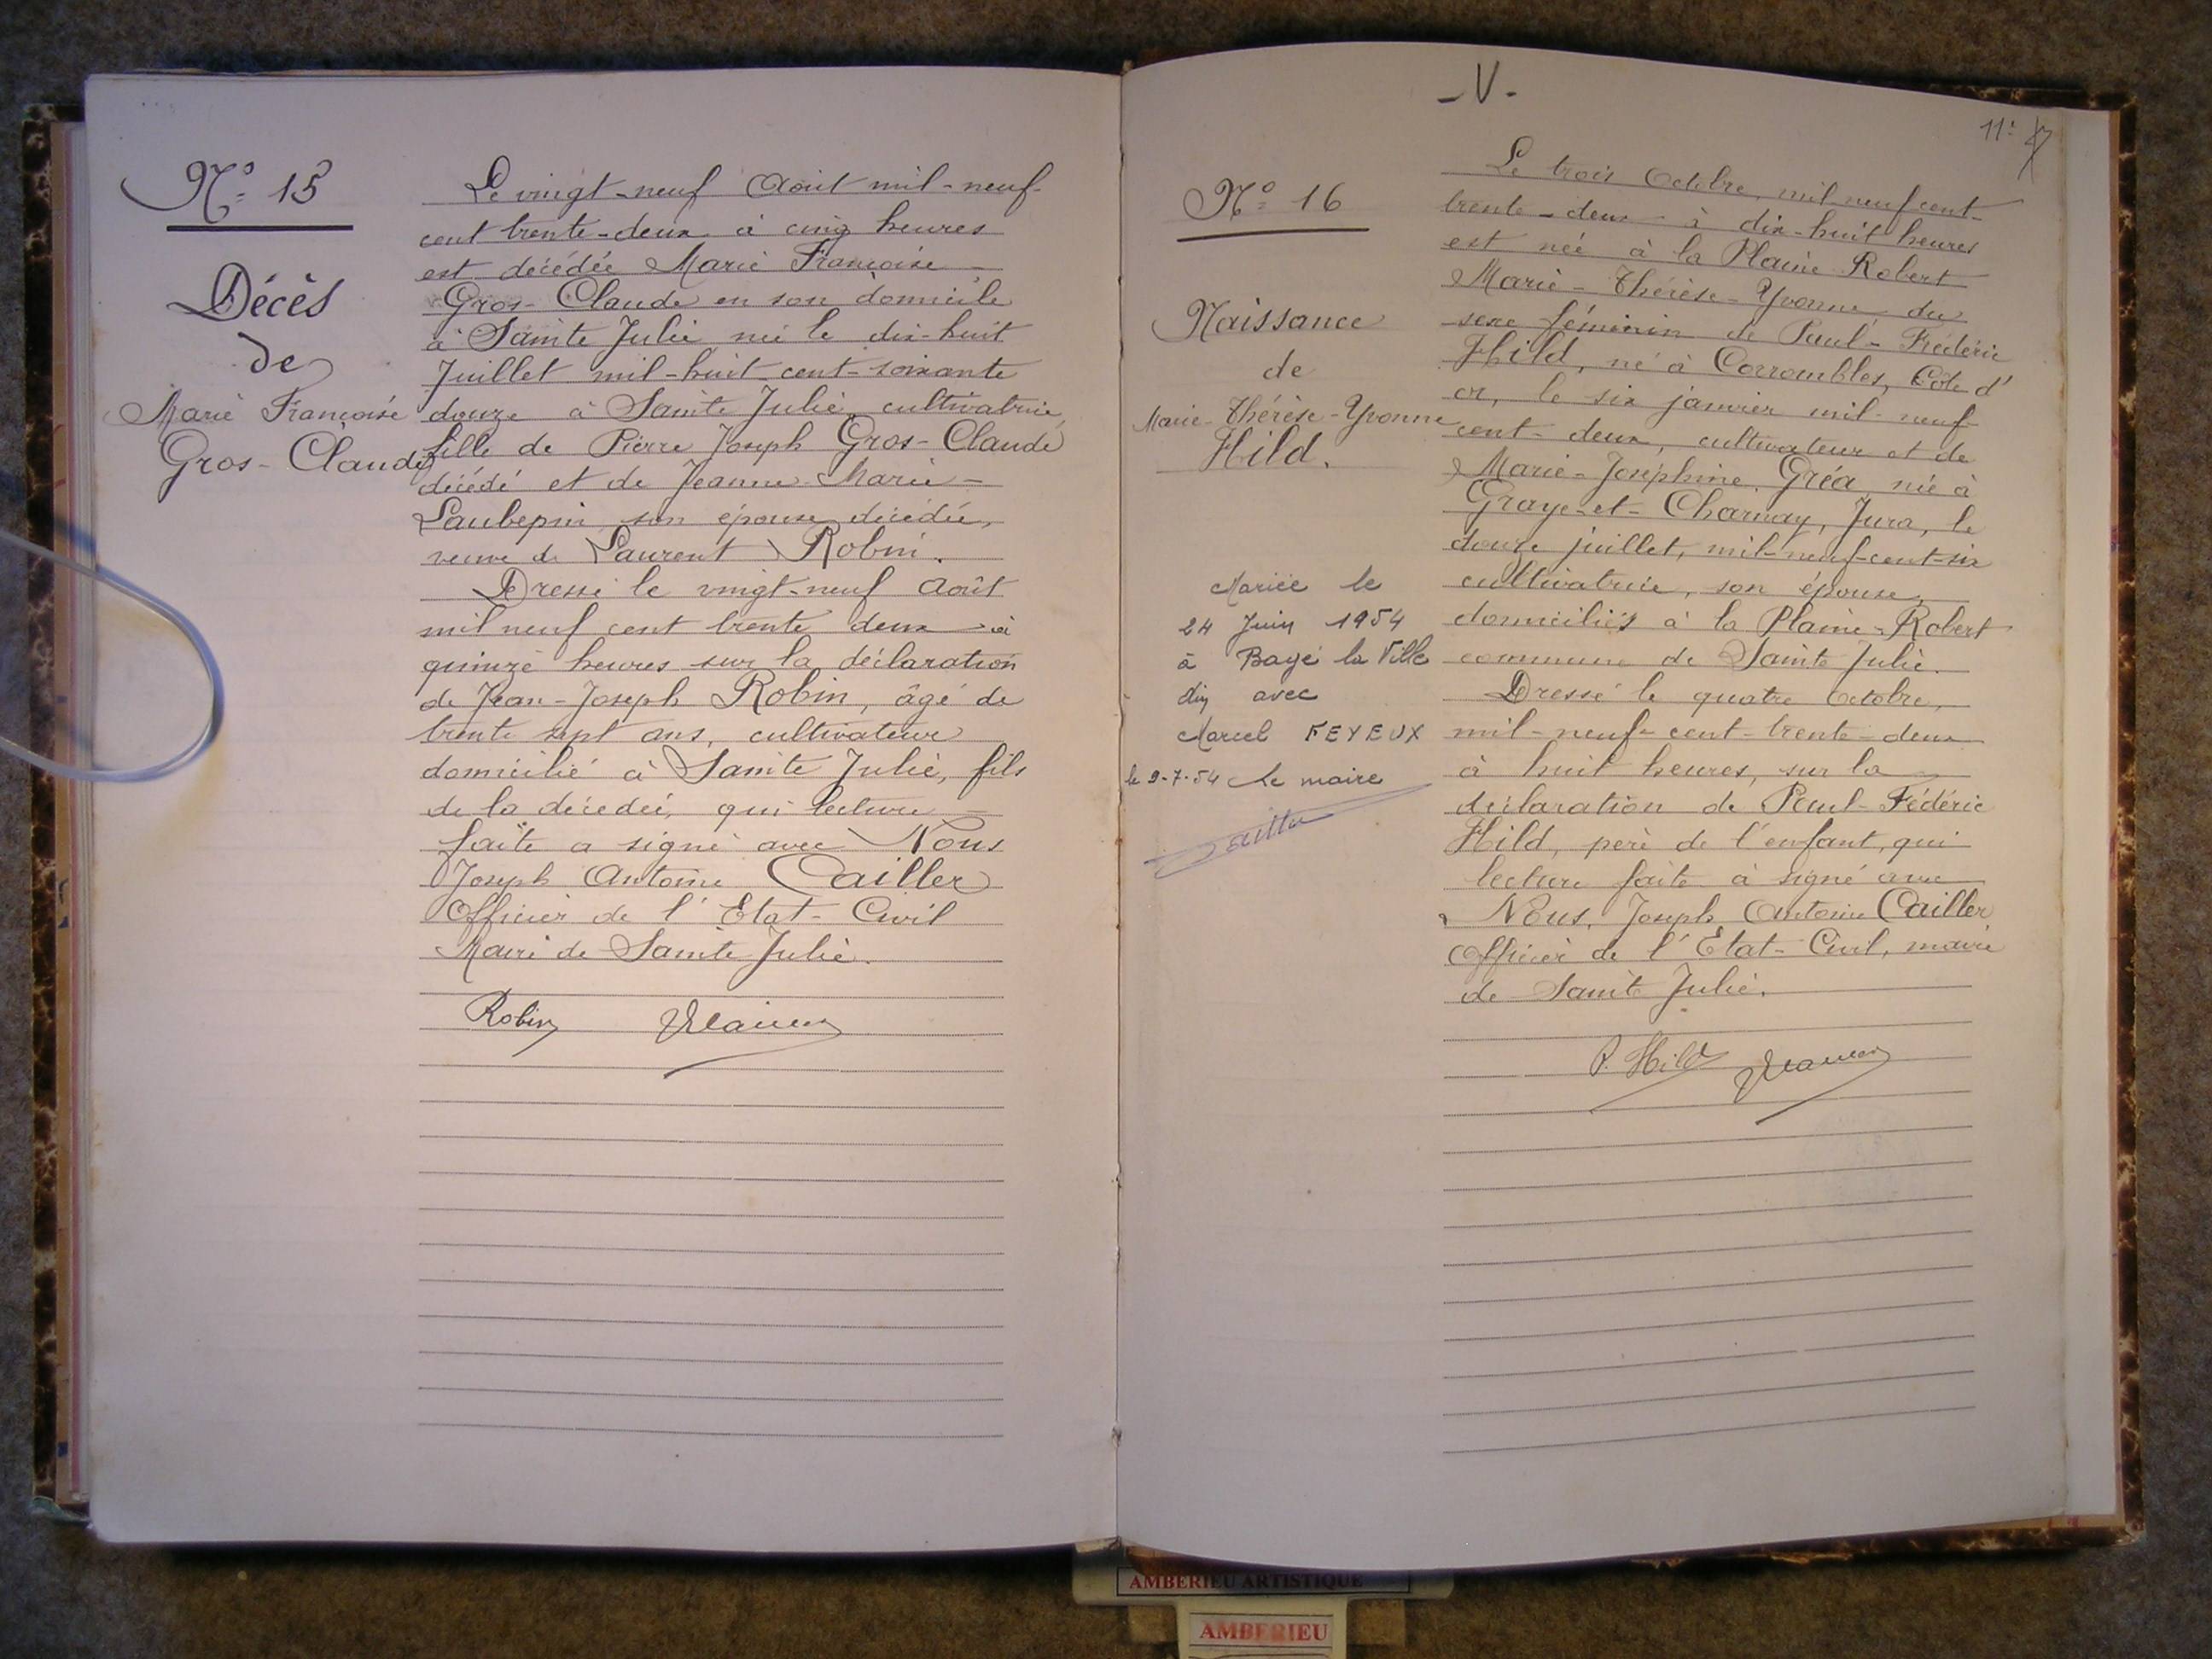 Nº 15
Décès
de
Marie Françoise
Gros-Claude
Le vingt-neuf Août mil-neuf-
cent trente-deux à cinq heures
est décédée Marie Françoise
Gros-Claude en son domicile
à Sainte Julie née le dix-huit
Juillet mil-huit-cent-soixante
douze à Sainte Julie, cultivatrice,
fille de Pierre Joseph Gros-Claude
décédé et de Jeanne-Marie-
Laubepin son épouse décédée,
veuve de Laurent Robin.
Dressé le vingt-neuf Août
mil neuf cent trente deux à
quinze heures sur la déclaration
de Jean-Joseph Robin, âgé de
trente sept ans, cultivateur
domicilié à Sainte Julie, fils
de la décédée, qui lecture
faite a signé avec Nous
Joseph Antoine Cailler
Officier de l'Etat-Civil
Maire de Sainte Julie.
Robin
-V-
11
Nº 16
Naissance
de
Marie-Thérèse-Yvonne
Hild.
Mariée le
24 Juin 1954
à Bagé la Ville
Ain avec
Marcel FEYEUX
le 9-7-54 Le maire
Le trois Octobre, mil neuf cent-
trente-deux à dix-huit heures
est née à la Plaine Robert
Marie-Thérèse-Yvonne du
sexe féminin de Paul-Frédéric
Hild, né à Corrombles, Côte d'
or, le six janvier mil-neuf-
cent-deux, cultivateur et de
Marie-Joséphine Gréa née à
Graye-et-Charnay, Jura, le
douze juillet, mil-neuf-cent-six
cultivatrice, son épouse,
domiciliés à la Plaine-Robert
commune de Sainte Julie.
Dressé le quatre Octobre,
mil-neuf-cent-trente-deux
à huit heures, sur la
déclaration de Paul-Fédéric
Hild, père de l'enfant, qui
lecture faite à signé avec
Nous, Joseph Antoine Cailler
Officier de l'Etat-Civil, maire
de Sainte Julie.
P. Hild
AMBERIEU ARTISTIQUE
AMBERIEU